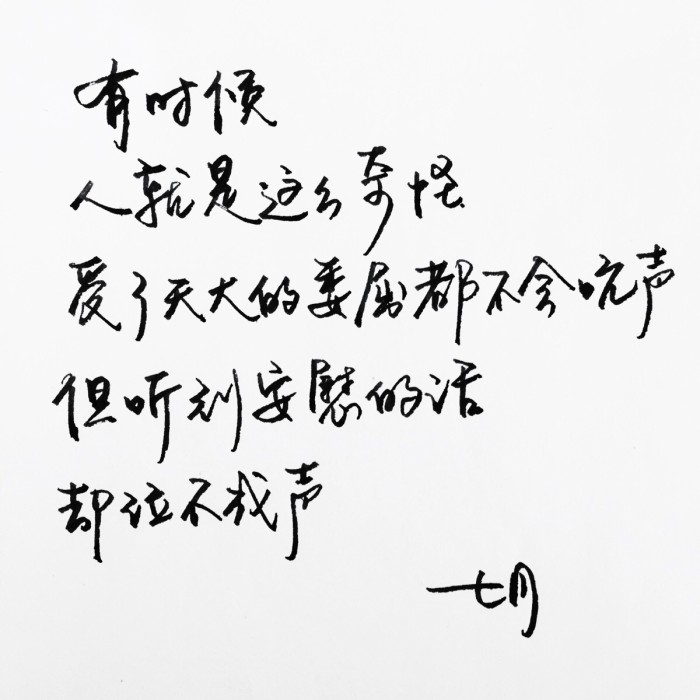 有时候
人就是这么奇怪
受了天大的委屈都不会吭声
但听到安慰的话
却泣不成声
七月